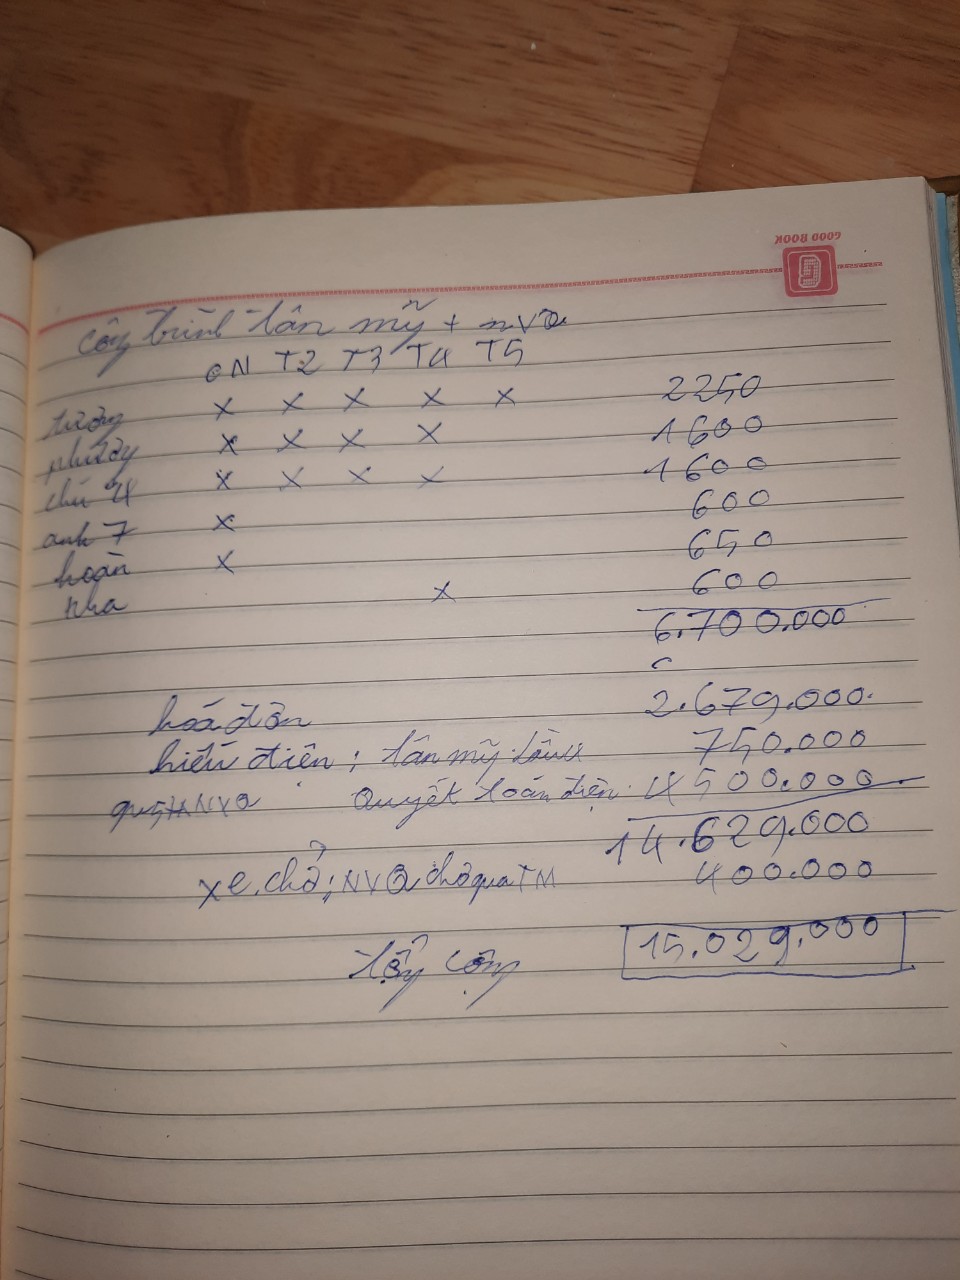 GOOD BOOK
công trình tân mỹ + NVQ
CN T2 T3 T4 T5
tường x x x x x 2250
phường x x x x 1600
chú 4 x x x x 1600
anh 7 x 600
hoàn x 650
nha x 600
6.700.000
hoá đơn 2.679.000
hiếu điện ; tân mỹ 750.000
NVQ Quyết toán điện 4500.000
14.629.000
xe chở ; NVQ chở qua TM 400.000
tổng cộng 15.029.000